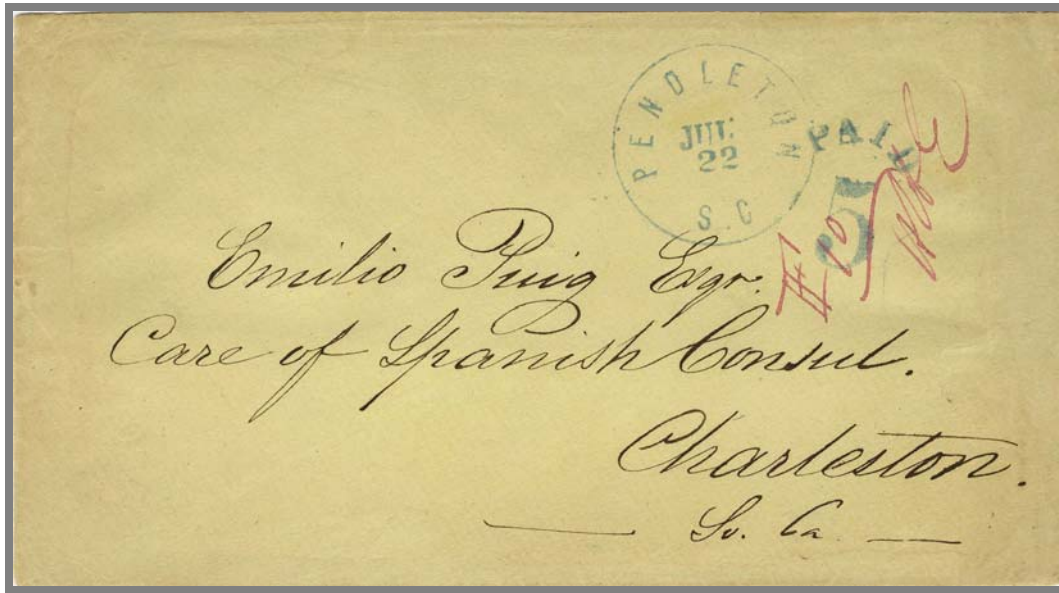 PENDLETON
JUL
22
S.C
PAID
5
10
Emilio Puig Esqr.
Care of Spanish Consul.
Charleston.
So. Ca